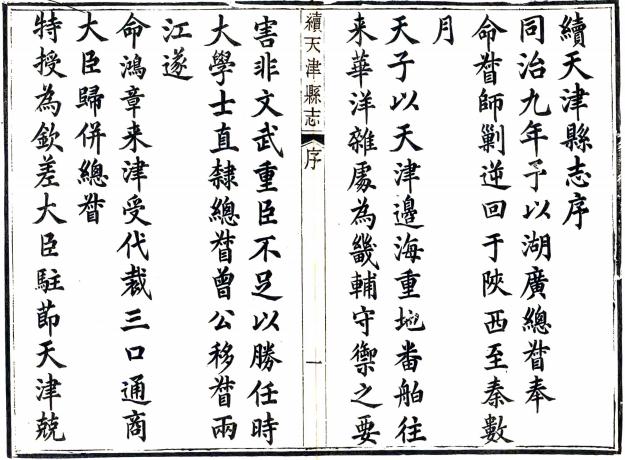 續天津縣志序
同治九年予以湖廣總督奉
命督師剿逆回于陝西至秦數
月
天子以天津邊海重地番舶往
来華洋雜處為畿輔守禦之要
續天津縣志 序 一
害非文武重臣不足以勝任時
大學士直隸總督曾公移督兩
江遂
命鴻章来津受代裁三口通商
大臣歸併總督
特授為欽差大臣駐莭天津兢